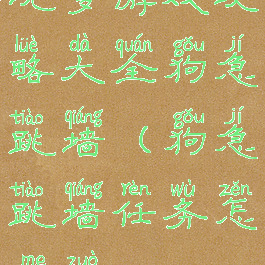 游戏攻
lüè dà quán gǒu jí
略大全狗急
tiào qiáng gǒu jí
跳墙（狗急
tiào qiáng rèn wù zěn
跳墙任务怎
me zuò